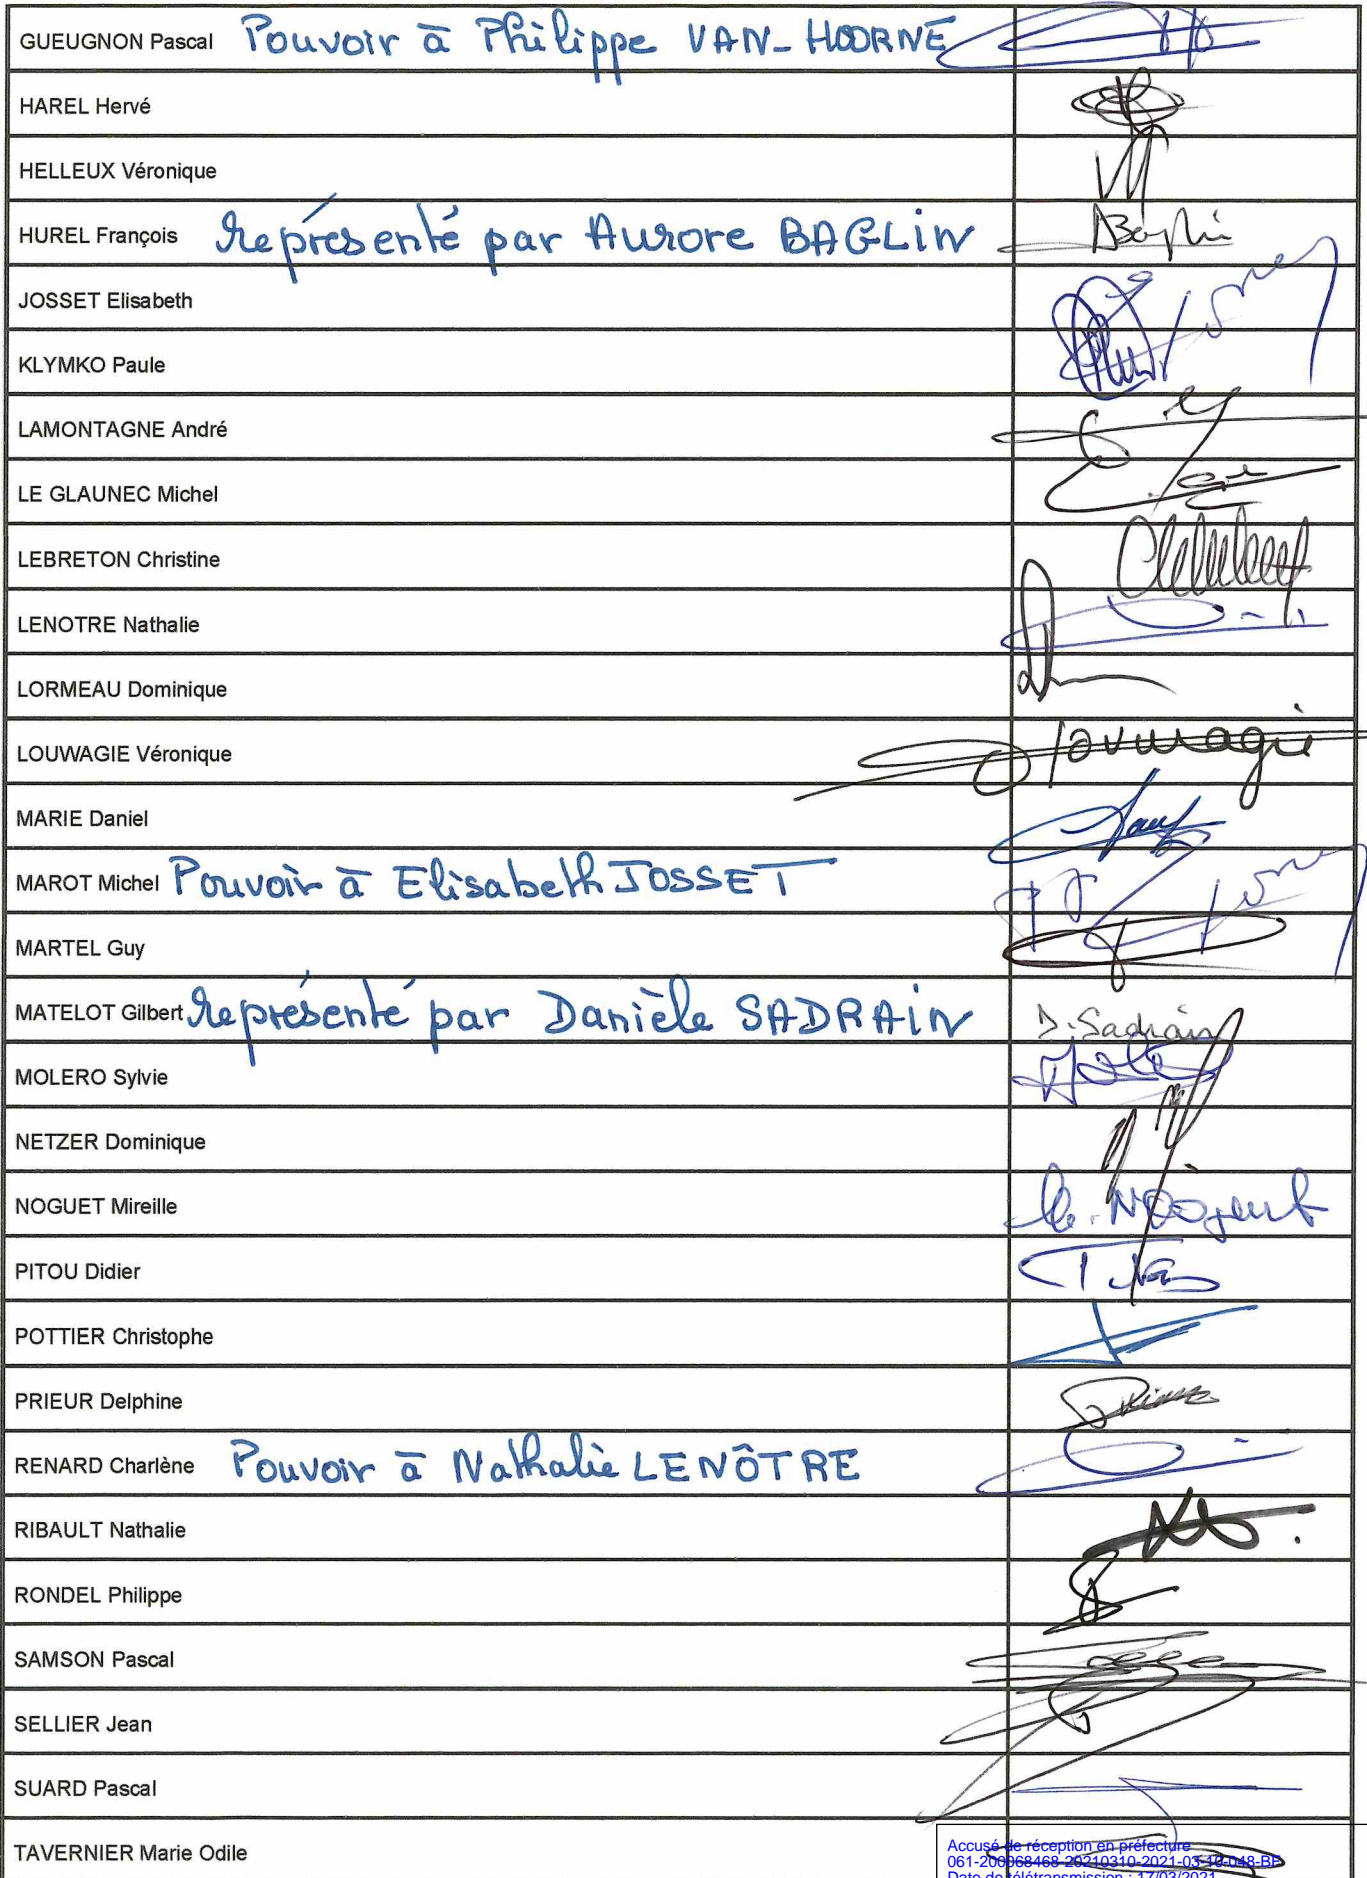 GUEUGNON Pascal Pouvoir à Philippe VAN-HOORNE
HAREL Hervé
HELLEUX Véronique
HUREL François Représenté par Aurore BAGLIN
JOSSET Elisabeth
KLYMKO Paule
LAMONTAGNE André
LE GLAUNEC Michel
LEBRETON Christine
LENOTRE Nathalie
LORMEAU Dominique
LOUWAGIE Véronique
MARIE Daniel
MAROT Michel Pouvoir à Elisabeth JOSSET
MARTEL Guy
MATELOT Gilbert Représenté par Danièle SADRAIN D. Sadrain
MOLERO Sylvie
NETZER Dominique
NOGUET Mireille
PITOU Didier
POTTIER Christophe
PRIEUR Delphine
RENARD Charlène Pouvoir à Nathalie LENÔTRE
RIBAULT Nathalie
RONDEL Philippe
SAMSON Pascal
SELLIER Jean
SUARD Pascal
TAVERNIER Marie Odile
Accusé de réception en préfecture
061-200068468-20210310-2021-03-10-048-BF
Date de télétransmission : 17/03/2021